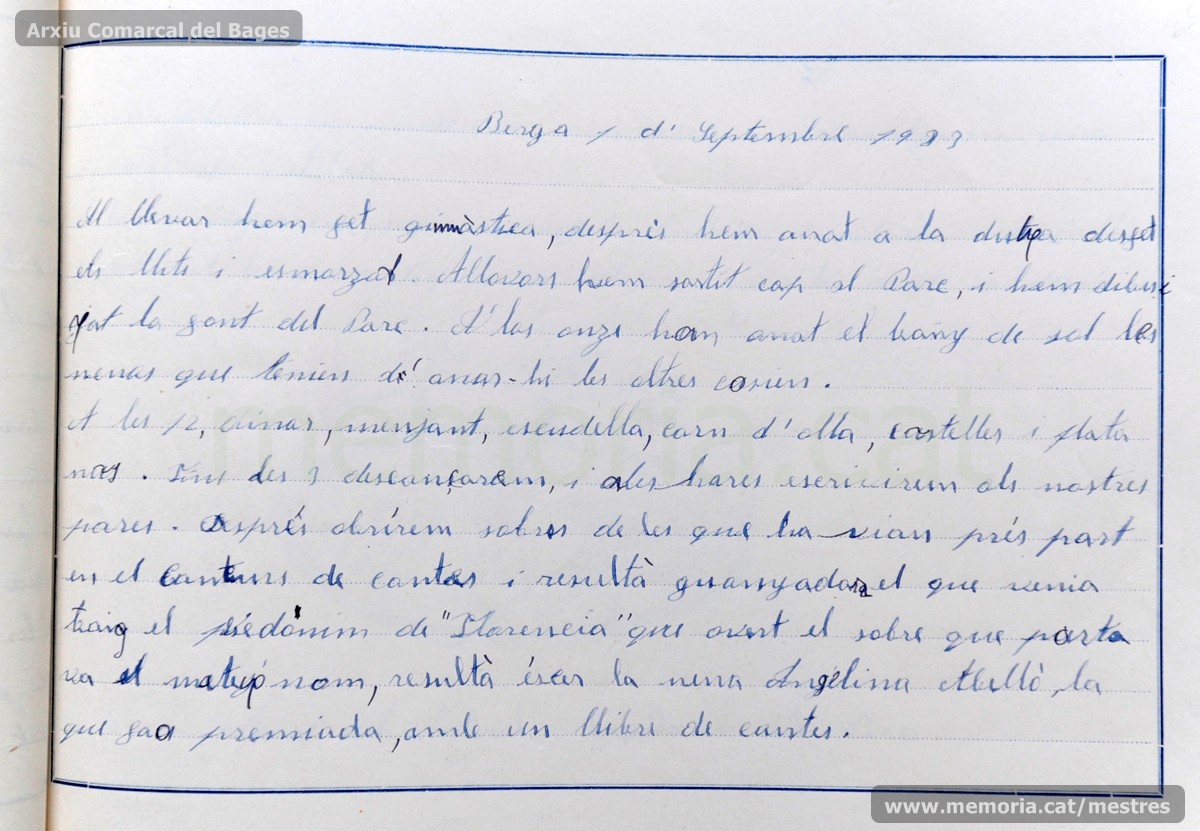 Arxiu Comarcal del Bages
Berga 1 d' Septembre 1933
Al llevar hem fet gimnàstica, desprès hem anat a la dutxa desfet
els llits i esmorzat. Allavors hem sortit cap al Parc, i hem dibui
xat la font del Parc. A' las onze han anat el bany de sol les
nenas que tenien d' anar-hi les altres cosien.
A les 12, dinar, menjant, escudella, carn d'olla, costelles i plata
nas. Fins les 3 descançarem, i ales hores escriurirem als nostres
pares. Desprès obrírem sobres de les que havian près part
en el concurs de contes i resultà guanyadora el que venia
el pseudònim de "Florencia" que overt el sobre que porta
va el nom, resultà ésser la nena Angélina Abelló, la
que fou premiada, amb un llibre de contes.
memoria.cat
www.memoria.cat/mestres